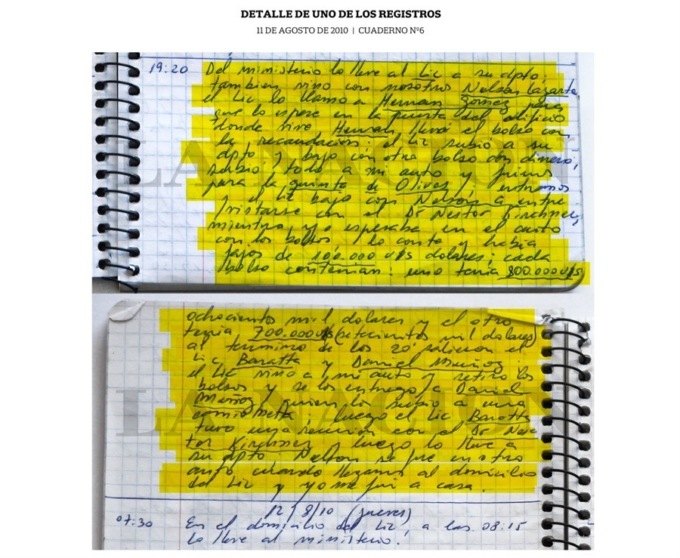 DETALLE DE UNO DE LOS REGISTROS
11 DE AGOSTO DE 2010 | CUADERNO Nº6
19:20 Del ministerio lo lleve al Lic a su dpto,
tambien vino con nosotros Nelson Lazarte,
el Lic lo llamo a Hernan Gomez para
que lo espere en la puerta del edificio
donde vive, Hernan llevó el bolso con
la recaudacion; el Lic subió a su
dpto y bajo con otro bolso con dinero,
subio todo a mi auto y fuimos
para la quinta de Olivos, entramos
el Lic bajo con Nelson a entre
vistarse con el Dr Nestor Kirchner,
mientras yo esperaba en el auto
con los bolsos lo conte y habia
fajos de 100.000 u$s dolares; cada
bolso contenian. uno tenia 800.000 u$s
LA NACION
ochociento mil dolares y el otro
tenia 700.000 u$s (setecientos mil dolares)
al termino de los 20' salieron el
Lic Baratta y Daniel Muñoz;
el Lic vino a mi auto y retiro los
bolsos y se los entrego a Daniel
Muñoz quien los subio a una
camioneta; luego el Lic Baratta
tuvo una reunion con el Dr Nes-
tor Kirchner y luego lo lleve a
su dpto Nelson se fue en otro
auto cuando llegamos al domicilio
del Lic y yo me fui a casa.
LA NACION
12/8/10 (jueves)
07:30 En el domicilio del Lic, a las 08:15
lo lleve al ministerio.